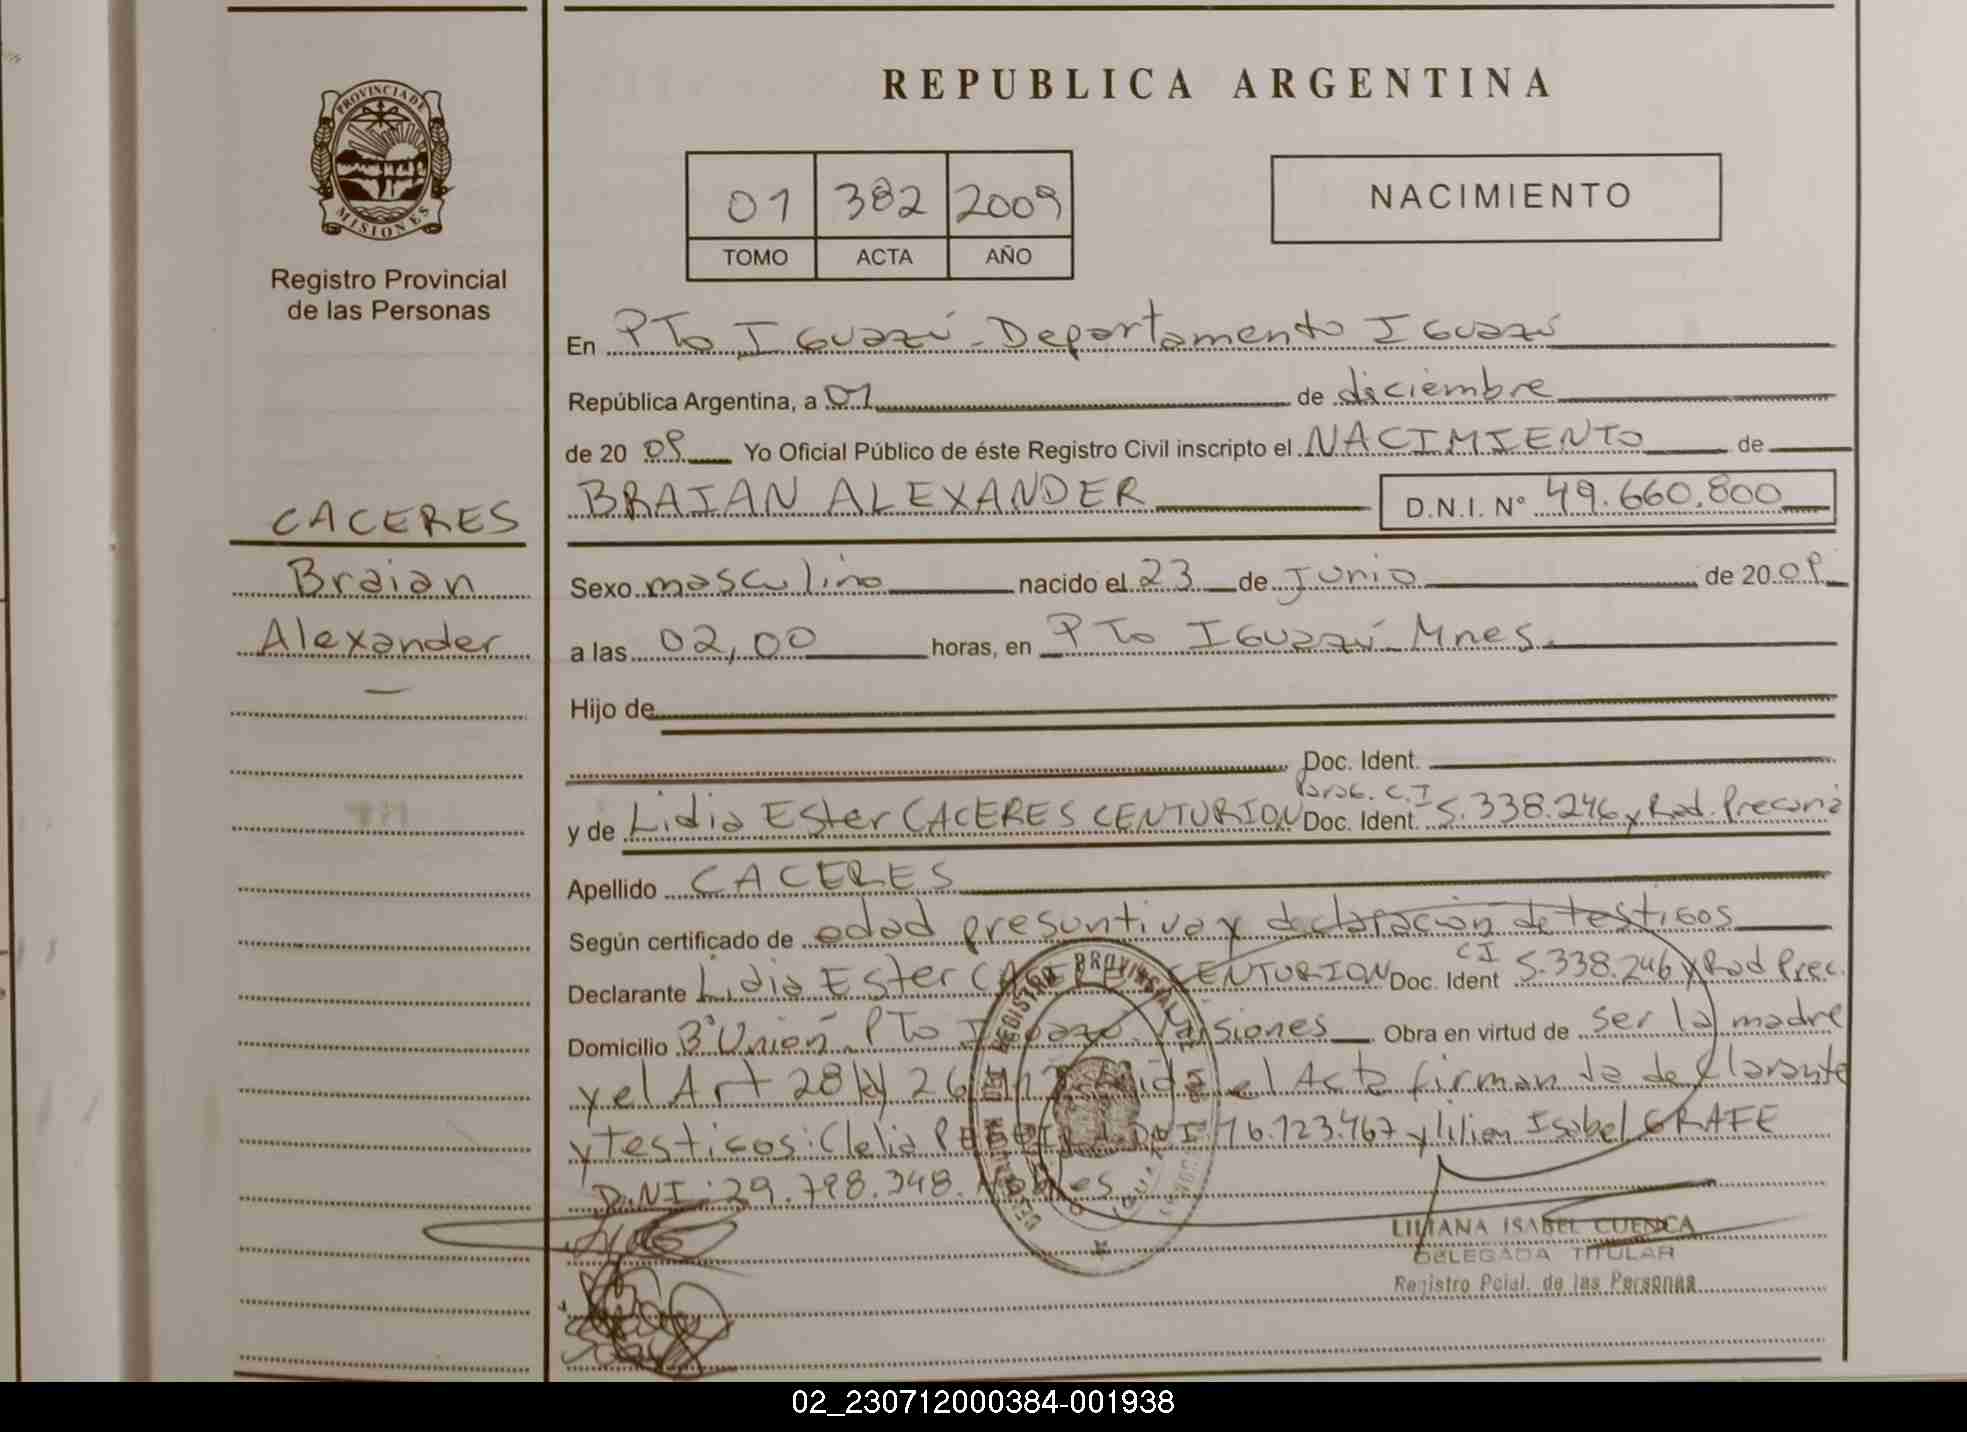 REPUBLICA ARGENTINA
PROVINCIA DE
MISIONES
Registro Provincial
de las Personas
01 382 2009
TOMO ACTA AÑO
NACIMIENTO
En PTo IGuazú - Departamento IGuazú
República Argentina, a 01 de diciembre
de 20 09 Yo Oficial Público de éste Registro Civil inscripto el NACIMIENTO de
BRAIAN ALEXANDER D.N.I. N° 49.660.800
CACERES
Braian
Alexander
Sexo masculino nacido el 23 de Junio de 20 09
a las 02,00 horas, en PTo IGuazú - Mnes.
Hijo de
Doc. Ident.
y de Lidia Ester CACERES CENTURION Doc. Ident. Parag. C.I 5.338.246 y Rad. Precaria
Apellido CACERES
Según certificado de edad presuntiva y declaración de testigos
Declarante Lidia Ester CENTURION Doc. Ident CI 5.338.246 y Rad Prec.
Domicilio B° Unión - PTo Misiones Obra en virtud de ser la madre
y el Art 28 Ley el Acta firman la declarante
y Testigos: Clelia 16.123.467 y lilian Isabel GRAFE
D.NI: 29.798.348.
REGISTRO PROVINCIAL
LILIANA ISABEL CUENCA
DELEGADA TITULAR
Registro Pcial. de las Personas
02_230712000384-001938